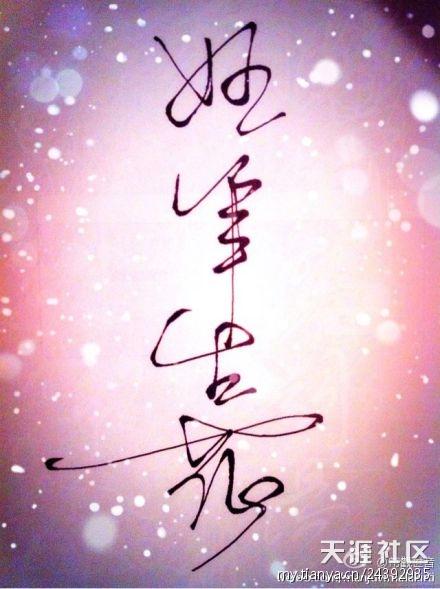 妙筆生花
天涯社区
my.tianya.cn/24392985